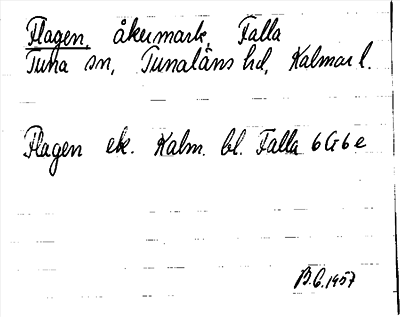 Flagen, åkermark, Falla
Tuna sn, Tunaläns hd, Kalmar l.
Flagen ek. Kalm. bl. Falla 6G6e
B.G. 1957